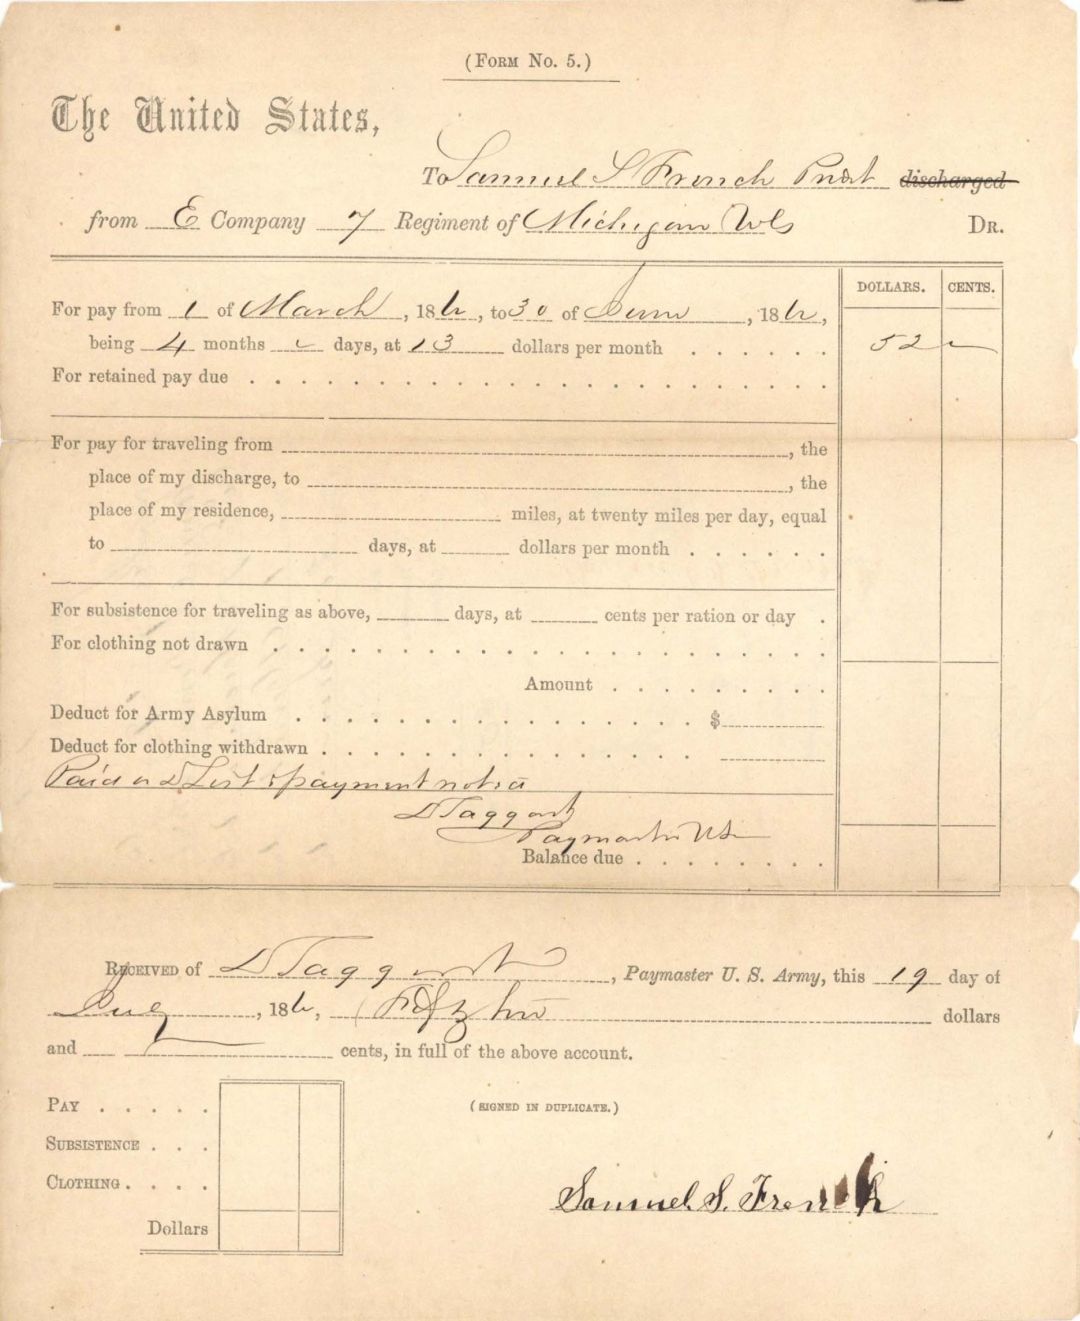 (FORM NO. 5.)
The United States,
To Samuel S French discharged
from E Company 7 Regiment of Michigan Vols DR.
DOLLARS. CENTS.
For pay from 1 of March, 186, to 30 of June, 186,
being 4 months days, at 13 dollars per month . . . . . . 52
For retained pay due . . . . . . . . . . . . . . . . . . . .
For pay for traveling from , the
place of my discharge, to , the
place of my residence, miles, at twenty miles per day, equal
to days, at dollars per month . . . . . .
For subsistence for traveling as above, days, at cents per ration or day .
For clothing not drawn . . . . . . . . . . . . . . . . . . .
Amount . . . . . . . . .
Deduct for Army Asylum . . . . . . . . . . . . . . . . . $
Deduct for clothing withdrawn . . . . . . . . . . . . . . .
Paid on D List & payment noted
D Taggart
Paymaster USA
Balance due . . . . . . . .
RECEIVED of D Taggart, Paymaster U. S. Army, this 19 day of
July, 186, Fifty two dollars
and cents, in full of the above account.
PAY . . . . .
(SIGNED IN DUPLICATE.)
SUBSISTENCE . . .
CLOTHING . . . .
Samuel S. French
Dollars